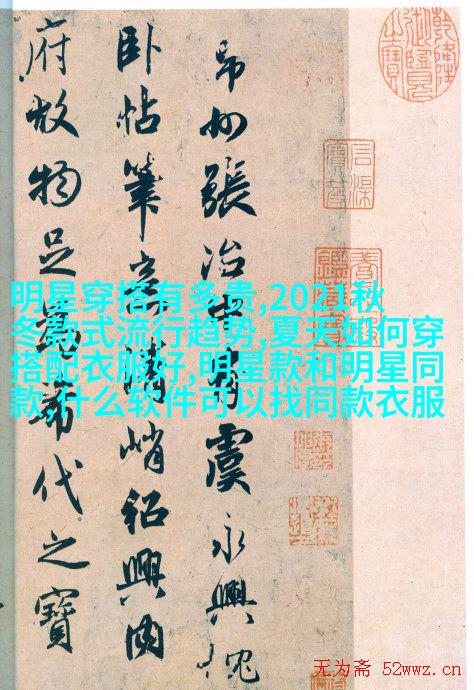 乾隆御覽之寶
州張治中虞永興枕
臥帖筆意清峭紹興内
府故物足為希代之寶
明星穿搭有多贵,2021秋
冬款式流行趋势,夏天如何穿
搭配衣服好,明星款和明星同
款,什么软件可以找同款衣服
无为斋 52wwz.cn